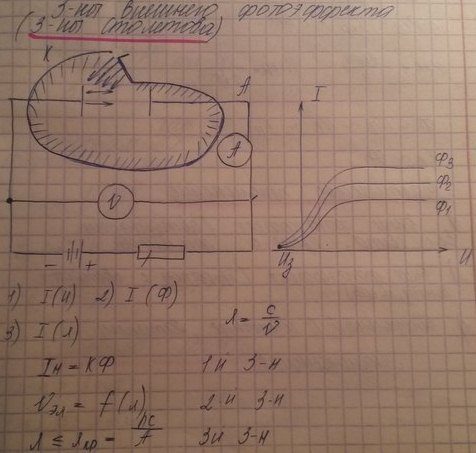 З-ны внешнего фотоэффекта
(З-ны Столетова)
К
А
A
V
- +
I
Ф3
Ф2
Ф1
Uз
U
1) I(U) 2) I (Ф)
3) I(λ)
λ = c/ν
Iн = КФ 1й З-н
Vэл = f(λ) 2й З-н
λ ≤ λкр = hc/A 3й З-н